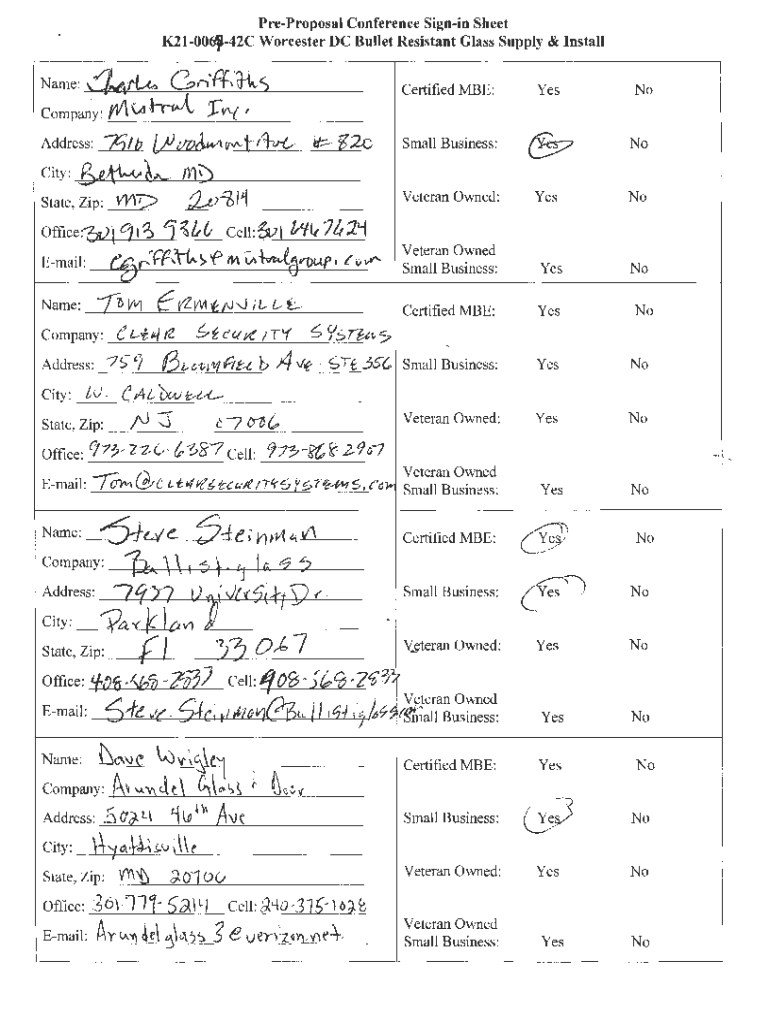 Pre-Proposal Conference Sign-in Sheet
K21-006-42C Worcester DC Bullet Resistant Glass Supply & Install
Name: Charles Griffiths Certified MBE: Yes No
Company: Mistral Inc.
Address: 7910 Woodmont Ave # 820 Small Business: Yes No
City: Bethesda MD
State, Zip: MD 20814 Veteran Owned: Yes No
Office: 301 913 9366 Cell: 301 6467624
Veteran Owned
E-mail: cgriffiths@mistralgroup.com Small Business: Yes No
Name: TOM ERMENVILLE Certified MBE: Yes No
Company: CLEAR SECURITY SYSTEMS
Address: 759 BLOOMFIELD AVE. STE 356 Small Business: Yes No
City: W. CALDWELL
State, Zip: NJ 07006 Veteran Owned: Yes No
Office: 973-226-6387 Cell: 973-868-2907
Veteran Owned
E-mail: TOM@CLEARSECURITYSYSTEMS.COM Small Business: Yes No
Name: Steve Steinman Certified MBE: Yes No
Company: Ballistiglass
Address: 7937 University Dr. Small Business: Yes No
City: Parkland
State, Zip: Fl 33067 Veteran Owned: Yes No
Office: 408-568-2833 Cell: 908-568-2833
Veteran Owned
E-mail: Steve.Steinman@Ballistiglass Small Business: Yes No
Name: Dave Wrigley Certified MBE: Yes No
Company: Arundel Glass & Door
Address: 5024 46th Ave Small Business: Yes No
City: Hyattsville
State, Zip: MD 20700 Veteran Owned: Yes No
Office: 301-779-5214 Cell: 240-375-1028
Veteran Owned
E-mail: Arundelglass3@verizon.net Small Business: Yes No